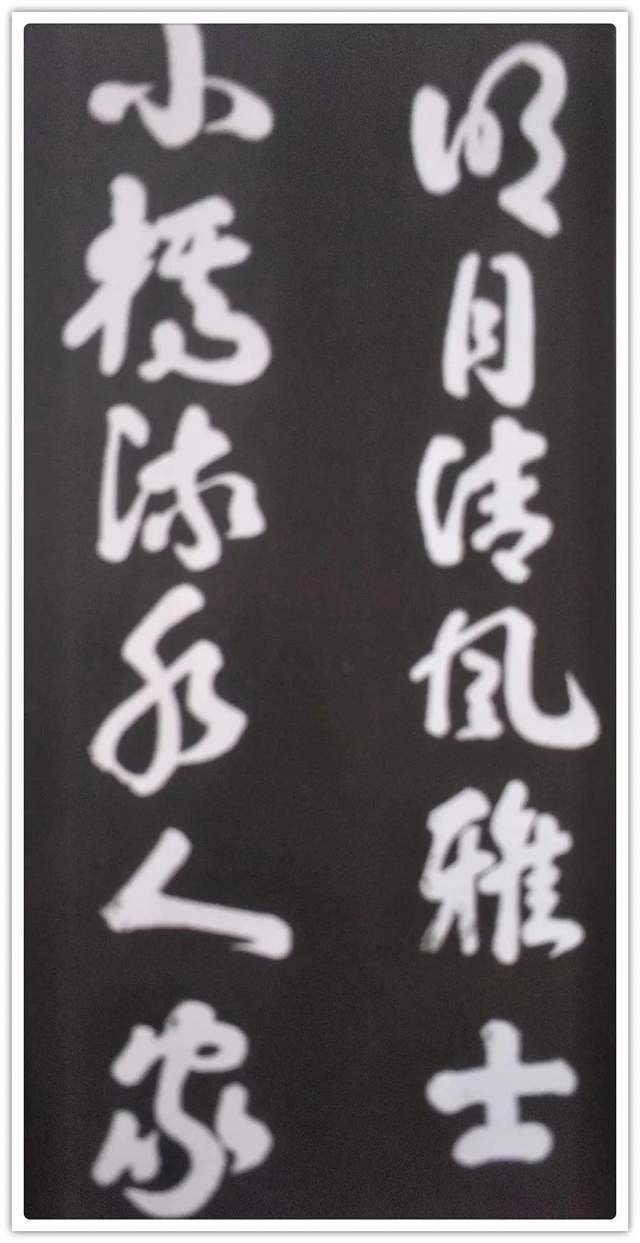 明月清风雅士
小橋流水人家